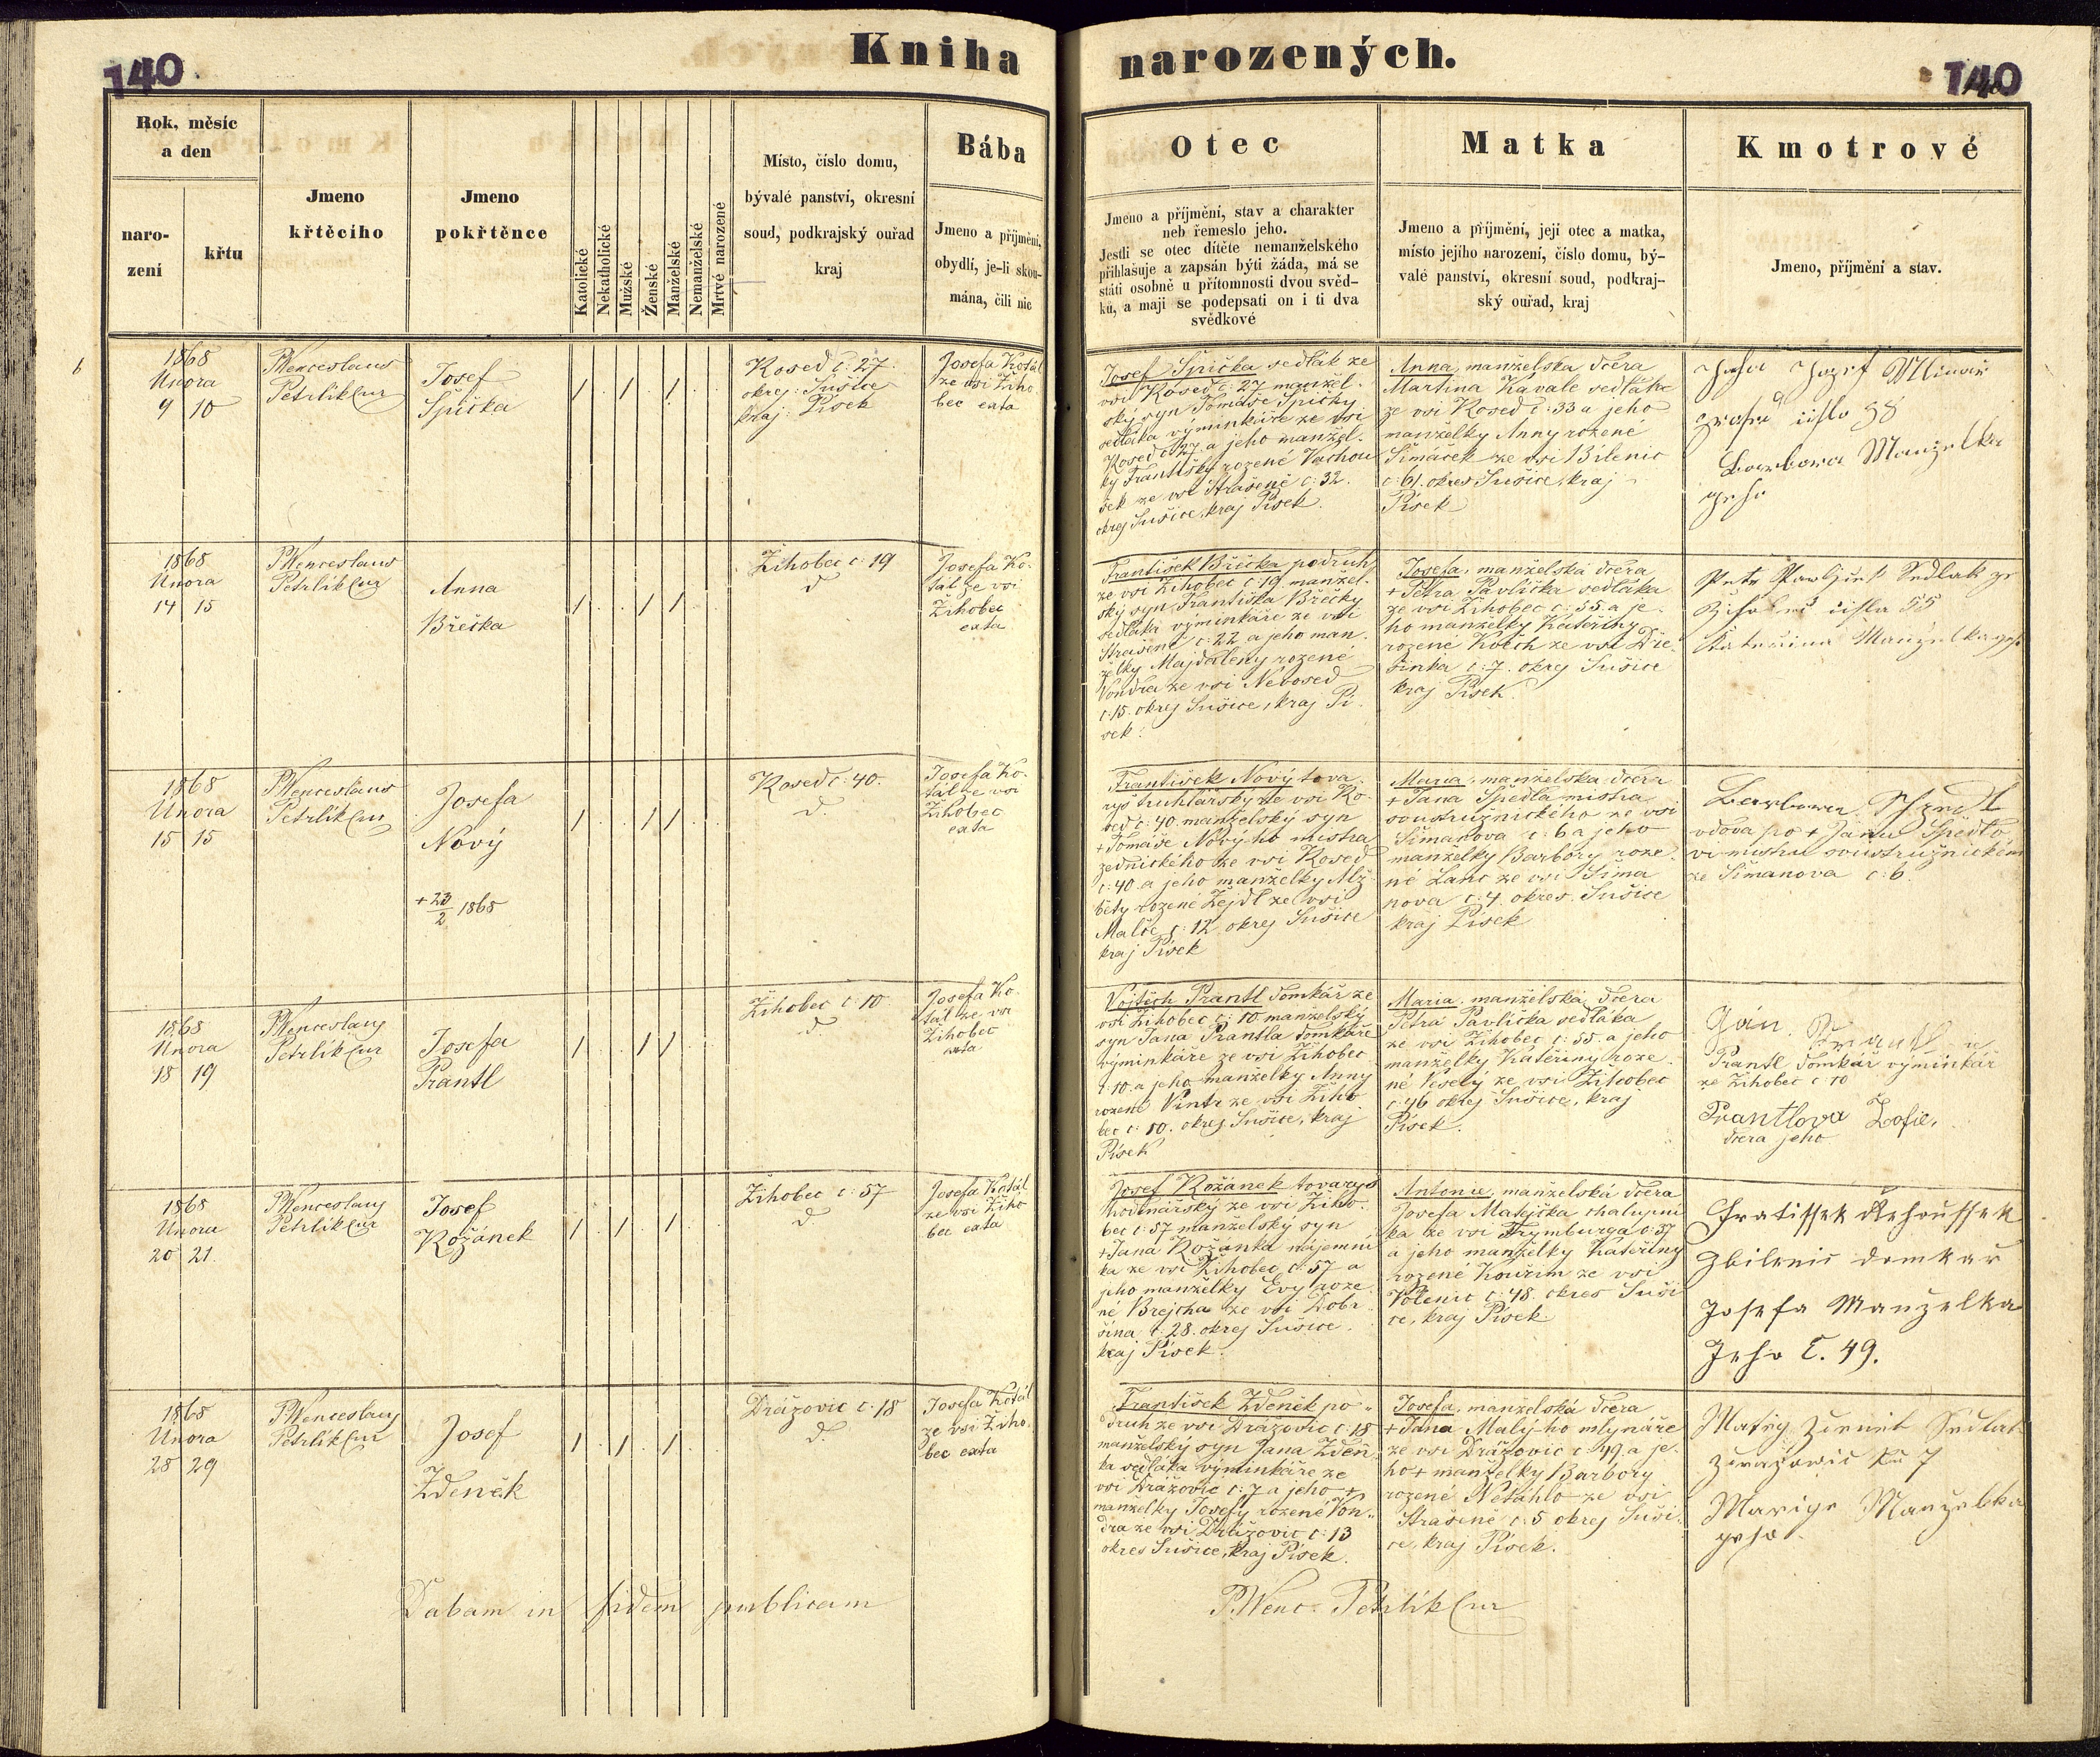 140
Kniha narozených.
140
Rok, měsíc
a den
naro-
zení
křtu
Jmeno
křtěcího
Jmeno
pokřtěnce
Katolické
Nekatholické
Mužské
Ženské
Manželské
Nemanželské
Mrtvé narozené
Místo, číslo domu,
bývalé panství, okresní
soud, podkrajský ouřad
kraj
Bába
Jmeno a příjmění,
obydlí, je-li skou-
mána, čili nic
Otec
Jmeno a příjmění, stav a charakter
neb řemeslo jeho.
Jestli se otec dítěte nemanželského
přihlašuje a zapsán býti žáda, má se
státi osobně u přítomnosti dvou svěd-
ků, a mají se podepsati on i ti dva
svědkové
Matka
Jmeno a příjmění, její otec a matka,
místo jejího narození, číslo domu, bý-
valé panství, okresní soud, podkraj-
ský ouřad, kraj
Kmotrové
Jmeno, příjmění a stav.
1868
Února
9 10
P Wenceslaus
Petrlík Cur
Josef
Špička
Kosed č: 27.
okrej: Sušice
kraj: Písek
Josefa Kotál
ze vsi Žiho
bec exta
Josef Špička sedlák ze
vsi Kosed č: 27 manžel-
ský syn Tomáše Špičky
sedláka výminkáře ze vsi
Kosed č. 27 a jeho manžel-
ky Františky rozené Vachou
šek ze vsi Strašeně č: 32.
okrej Sušice, kraj Písek.
Anna, manželska dcera
Martina Kavale sedláka
ze vsi Kosed č: 33 a jeho
manželky Anny rozené
Šimáček ze vsi Bilenic
č: 61. okres Sušice, kraj
Písek
Jozef
číslo 38
Barbora Manželka
jeho
1868
Února
14 15
P Wenceslaus
Petrlík Cur
Anna
Břečka
Žihobec č: 19
d
Josefa Ko-
tál ze vsi
Žihobec
exta
František Břečka podruh
ze vsi Žihobec č: 19. manžel-
ský syn Františka Břečky
sedláka výminkáře ze vsi
Strašeně č: 22 a jeho man-
želky Majdaleny rozené
Vondra ze vsi Nezdsed
č: 15. okrej Sušice, kraj Pí-
sek.
Josefa, manželská dcera
+ Petra Pavlíčka sedláka
ze vsi Žihobec č: 55. a je-
ho manželky Kateřiny
rozené Koch ze vsi Dře-
šinka č: 7. okrej Sušice
kraj Písek.
Petr Pawliczek Sedlak ze
čísla 55
Kateřina Manželka jeho
1868
Února
15 15
P Wenceslaus
Petrlík Cur
Josefa
Nový
+ 23/2 1868
Kosed č: 40.
d.
Josefa Ko-
tál ze vsi
Žihobec
exta
František Nový tova-
ryš truhlářský ze vsi Ko-
sed č: 40. manželský syn
+ Tomáše Nový-ho mistra
zednického ze vsi Kosed
č: 40. a jeho manželky Alž-
běty rozené Zejdl ze vsi
Malče č: 12 okrej Sušice
kraj Písek
Maria, manželska dcera
+ Jana Špedla mistra
soustružnického ze vsi
Šimanova č: 6 a jeho
manželky Barbory roze-
né Lanc ze vsi Šima
nova č: 4. okres Sušice
kraj Písek
Barbora
vdova po + Janu Špedlo
vi mistru soustružnickém
ze Šimanova č: 6.
1868
Února
18 19
P Wenceslaus
Petrlík Cur
Josefa
Prantl
Žihobec č: 10.
d
Josefa Ko-
tál ze vsi
Žihobec
exta
Vojtěch Prantl domkář ze
vsi Žihobec č: 10 manželský
syn Jana Prantla domkáře
výminkáře ze vsi Žihobec
č: 10. a jeho manželky Anny
rozené Vintr ze vsi Žiho
bec č: 80. okrej Sušice, kraj
Písek
Maria, manželská dcera
Petra Pavlíčka sedláka
ze vsi Žihobec č: 55. a jeho
manželky Kateřiny roze-
né Veselý ze vsi Žihobec
č: 46 okrej Sušice, kraj
Písek.
Prantl domkář výminkář
ze Žihobec č: 10
Prantlova Žofie,
dcera jeho
1868
Února
20 21.
P Wenceslaus
Petrlík Cur
Josef
Kožánek
Žihobec č: 57
d
Josefa Kotál
ze vsi Žiho
bec exta
Josef Kožánek tovaryš
hodinářský ze vsi Žiho-
bec č: 57 manželský syn
+ Jana Kožánka nájemní
ka ze vsi Žihobec č: 57 a
jeho manželky Evy roze-
né Brejcha ze vsi Dobr-
šína č: 28. okrej Sušice.
kraj Písek.
Antonie, manželská dcera
Josefa Matějčka chalupní
ka ze vsi Frymburga č: 57
a jeho manželky Kateřiny
rozené Kouřim ze vsi
Volenic č: 48. okres Suši
ce, kraj Písek
Fratissek Rehoussek
Zbilenic domkař
Josefa Manželka
Jeho č. 49.
1868
Února
28 29
P Wenceslaus
Petrlík Cur
Josef
Zdeněk
Dražovic č: 18
d.
Josefa Kotál
ze vsi Žiho
bec exta
František Zdeněk po-
druh ze vsi Dražovic č: 18
manželský syn Jana Zdeň-
ka sedláka výminkáře ze
vsi Dražovic č: 7 a jeho +
manželky Josefy rozené Von-
dra ze vsi Dražovic č: 13
okres Sušice, kraj Písek.
Josefa, manželská dcera
+ Jana Malý-ho mlynáře
ze vsi Dražovic č: 49 a je-
ho + manželky Barbory
rozené Netáhlo ze vsi
Strašeně č: 5 okrej Suši-
ce, kraj Písek.
7
Manželka
jeho
Dabam in fidem publicam
P. Wenc. Petrlík Cur